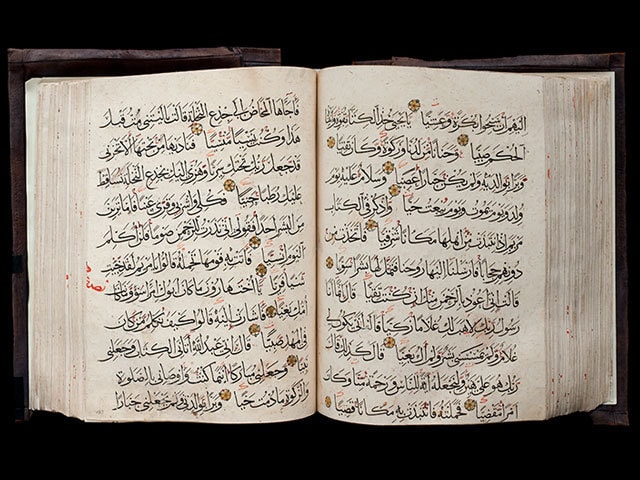 اليهم ان سبحوا بكرة وعشيا يا يحيى خذ الكتاب بقوة واتيناه
الحكم صبيا وحنانا من لدنا وزكوة وكان تقيا
وبرا بوالديه ولم يكن جبارا عصيا وسلام عليه يوم
ولد ويوم يموت ويوم يبعث حيا واذكر في الكتاب
مريم اذ انتبذت من اهلها مكانا شرقيا فاتخذت من
دونهم حجابا فارسلنا اليها روحنا فتمثل لها بشرا سويا
قالت اني اعوذ بالرحمن منك ان كنت تقيا قال انما انا
رسول ربك لاهب لك غلاما زكيا قالت انى يكون لي
غلام ولم يمسسني بشر ولم اك بغيا قال كذلك قال
ربك هو علي هين ولنجعله اية للناس ورحمة منا وكان
امرا مقضيا فحملته فانتبذت به مكانا قصيا
فاجاءها المخاض الى جذع النخلة قالت يا ليتني مت قبل
هذا وكنت نسيا منسيا فناداها من تحتها الا تحزني
قد جعل ربك تحتك سريا وهزي اليك بجذع النخلة تساقط
عليك رطبا جنيا فكلي واشربي وقري عينا فاما ترين
من البشر احدا فقولي اني نذرت للرحمن صوما فلن اكلم
اليوم انسيا فاتت به قومها تحمله قالوا يا مريم لقد جئت
شيئا فريا يا اخت هارون ما كان ابوك امرا سوء وما كانت
امك بغيا فاشارت اليه قالوا كيف نكلم من كان
في المهد صبيا قال اني عبد الله اتاني الكتاب وجعلني
نبيا وجعلني مباركا اينما كنت واوصاني بالصلوة
والزكوة ما دمت حيا وبرا بوالدتي ولم يجعلني جبارا